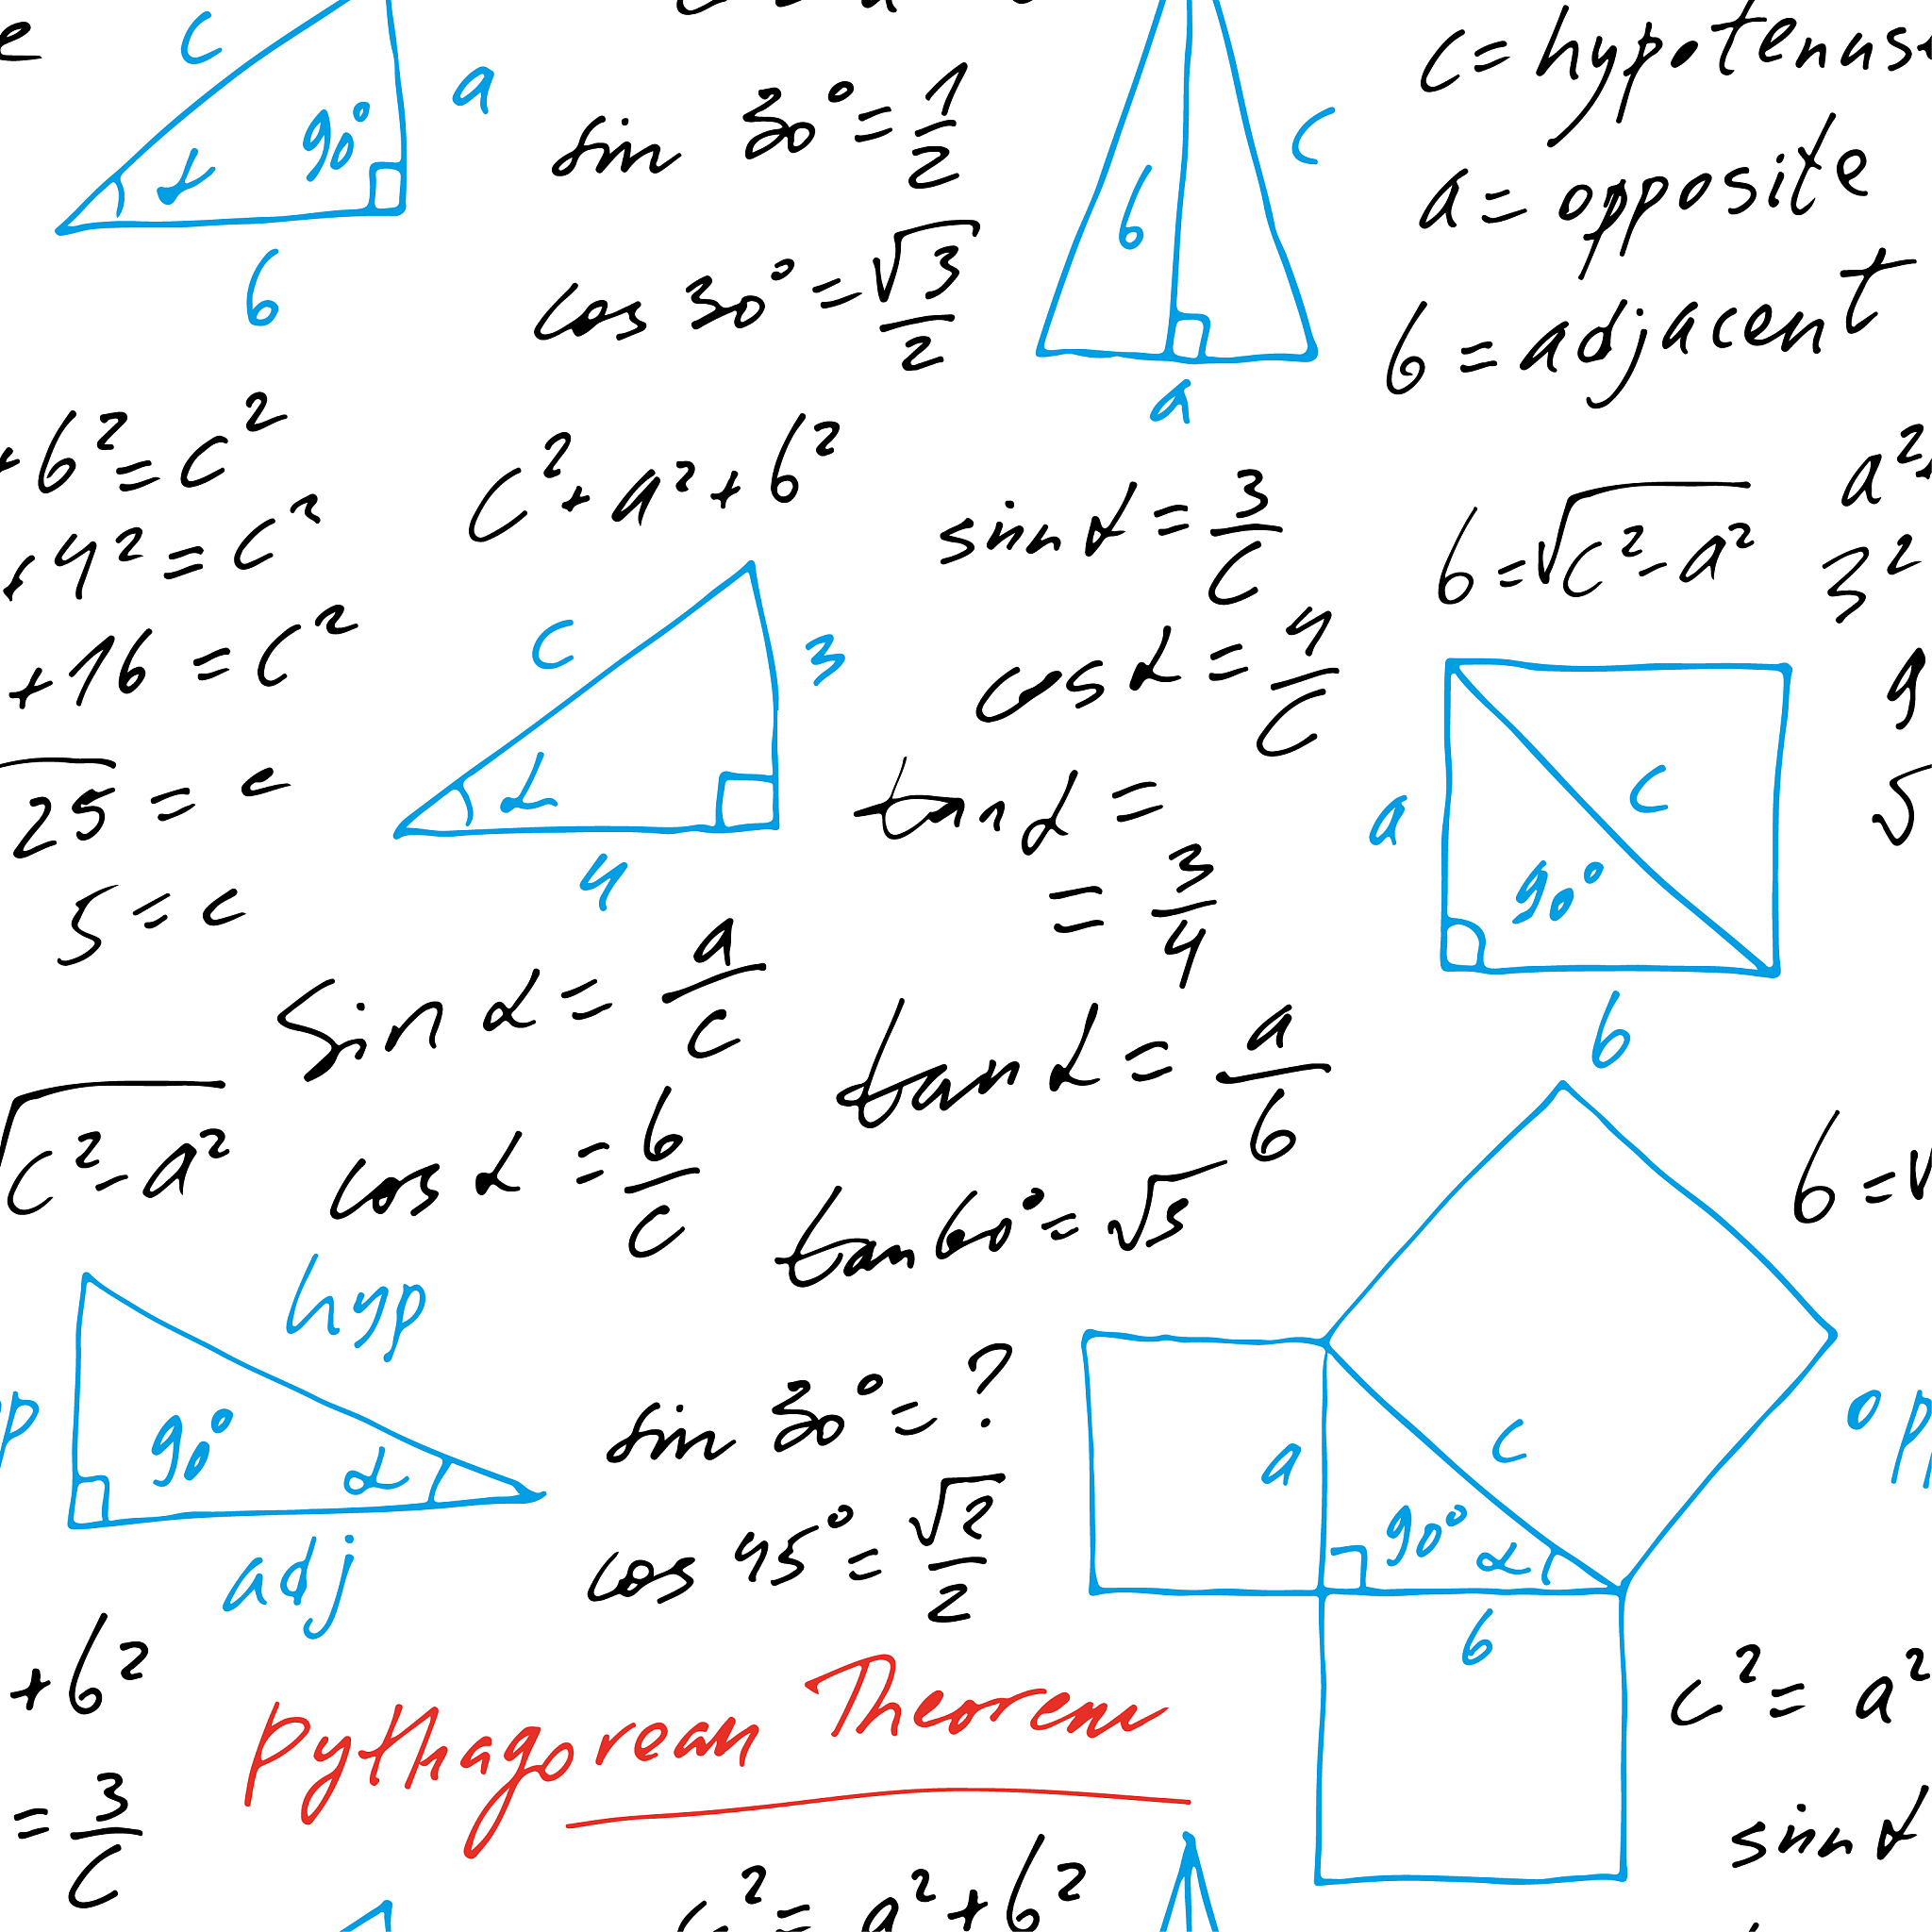 c
a
90°
α
b
sin 30° = 1/2
cos 30° = √3/2
b
c
a
c = hypotenus
a = opposite
b = adjacent
+ b² = c²
4² = c²
+ 16 = c²
25 = c
5 = c
c² + a² + b²
c
3
α
4
sin α = 3/c
cos α = 4/c
tan α =
= 3/4
b = √c² = a²
a²+
3²
a
c
90°
b
sin α = a/c
cos α = b/c
tan α = a/b
√c² = a²
tan 60° = √3
b = √
hyp
p
90°
α
adj
sin 30° = ?
cos 45° = √2/2
a
c
90°
α
b
op
+ b²
= 3/c
Pythagorean Theorem
c² = a²
sin α
c² = a² + b²